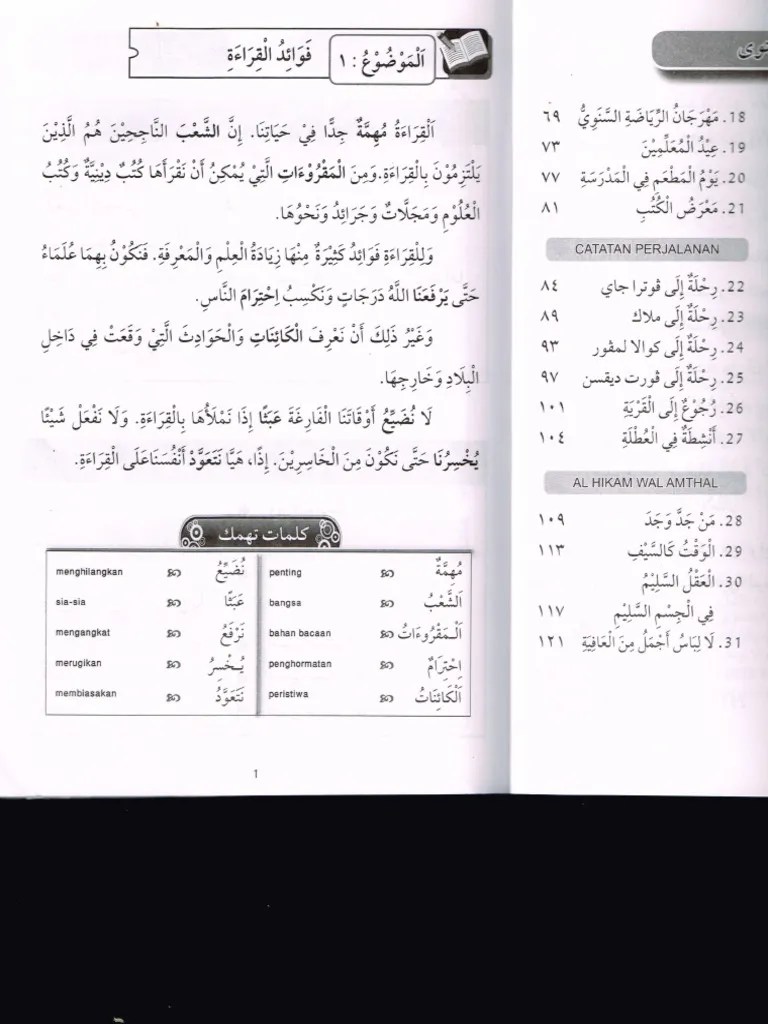 توى
18. مَهْرَجَانُ الرِّيَاضَةِ السَّنَوِيُّ ٦٩
19. عِيْدُ الْمُعَلِّمِيْنَ ٧٣
20. يَوْمُ الْمَطْعَمِ فِي الْمَدْرَسَةِ ٧٧
21. مَعْرَضُ الْكُتُبِ ٨١
CATATAN PERJALANAN
22. رِحْلَةٌ إِلَى ڤوترا جاي ٨٤
23. رِحْلَةٌ إِلَى ملاك ٨٩
24. رِحْلَةٌ إِلَى كوالا لمڤور ٩٣
25. رِحْلَةٌ إِلَى ڤورت ديقسن ٩٧
26. رُجُوْعٌ إِلَى الْقَرْيَةِ ١٠١
27. أَنْشِطَةٌ فِي الْعُطْلَةِ ١٠٤
AL HIKAM WAL AMTHAL
28. مَنْ جَدَّ وَجَدَ ١٠٩
29. الْوَقْتُ كَالسَّيْفِ ١١٣
30. الْعَقْلُ السَّلِيْمُ
فِي الْجِسْمِ السَّلِيْمِ ١١٧
31. لَا لِبَاسَ أَجْمَلُ مِنَ الْعَافِيَةِ ١٢١
اَلْمَوْضُوْعُ : ١ فَوَائِدُ الْقِرَاءَةِ
اَلْقِرَاءَةُ مُهِمَّةٌ جِدًّا فِيْ حَيَاتِنَا. إِنَّ الشَّعْبَ النَّاجِحِيْنَ هُمُ الَّذِيْنَ
يَلْتَزِمُوْنَ بِالْقِرَاءَةِ. وَمِنَ الْمَقْرُوْءَاتِ الَّتِيْ يُمْكِنُ أَنْ نَقْرَأَهَا كُتُبٌ دِيْنِيَّةٌ وَكُتُبُ
الْعُلُوْمِ وَمَجَلَّاتٌ وَجَرَائِدُ وَنَحْوُهَا.
وَلِلْقِرَاءَةِ فَوَائِدُ كَثِيْرَةٌ مِنْهَا زِيَادَةُ الْعِلْمِ وَالْمَعْرِفَةِ. فَنَكُوْنُ بِهِمَا عُلَمَاءُ
حَتَّى يَرْفَعَنَا اللَّهُ دَرَجَاتٍ وَنَكْسِبُ اِحْتِرَامَ النَّاسِ.
وَغَيْرُ ذَلِكَ أَنْ نَعْرِفَ الْكَائِنَاتِ وَالْحَوَادِثَ الَّتِيْ وَقَعَتْ فِي دَاخِلِ
الْبِلَادِ وَخَارِجِهَا.
لَا نُضَيِّعُ أَوْقَاتَنَا الْفَارِغَةَ عَبَثًا إِذَا نَمْلَأُهَا بِالْقِرَاءَةِ. وَلَا نَفْعَلُ شَيْئًا
يُخْسِرُنَا حَتَّى نَكُوْنَ مِنَ الْخَاسِرِيْنَ. إِذًا، هَيَّا نَتَعَوَّدْ أَنْفُسَنَا عَلَى الْقِرَاءَةِ.
كلمات تهمك
مُهِمَّةٌ penting نُضَيِّعُ menghilangkan
اَلشَّعْبُ bangsa عَبَثًا sia-sia
اَلْمَقْرُوءَاتُ bahan bacaan نَرْفَعُ mengangkat
اِحْتِرَامٌ penghormatan يُخْسِرُ merugikan
اَلْكَائِنَاتُ peristiwa نَتَعَوَّدُ membiasakan
1